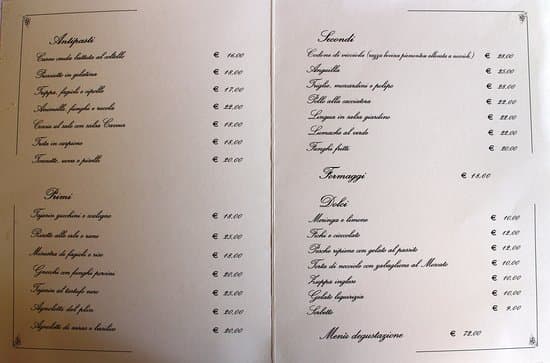 Antipasti
Carne cruda battuta al coltello € 16.00
Prosciutto in gelatina € 18.00
Trippa, fagioli e cipolla € 17.00
Animelle, funghi e rucola € 22.00
Carne al sale con salsa € 18.00
Trota in carpione € 18.00
Tonnetto, uova e piselli € 20.00
Primi
Tajarin zucchini e € 18.00
Risotto alle e rane € 25.00
Minestra di fagioli e riso € 18.00
Gnocchi con funghi porcini € 20.00
Tajarin al tartufo nero € 25.00
Agnolotti del plin € 20.00
Agnolotti di seirass e basilico € 20.00
Secondi
Codone di vicciola (razza bovina piemontese allevata a nocciole) € 28.00
Anguilla € 25.00
Triglie, moscardini e polipo € 28.00
Pollo alla cacciatora € 22.00
Lingua in salsa giardino € 22.00
Lumache al verde € 22.00
Funghi fritti € 20.00
Formaggi € 18.00
Dolci
Meringa e limone € 10.00
Fichi e cioccolato € 12.00
Pesche ripiene con gelato al passito € 12.00
Torta di nocciole con zabaglione al Moscato € 10.00
Zuppa inglese € 10.00
Gelato liquirizia € 10.00
Sorbetto € 9.00
Menù degustazione € 72.00